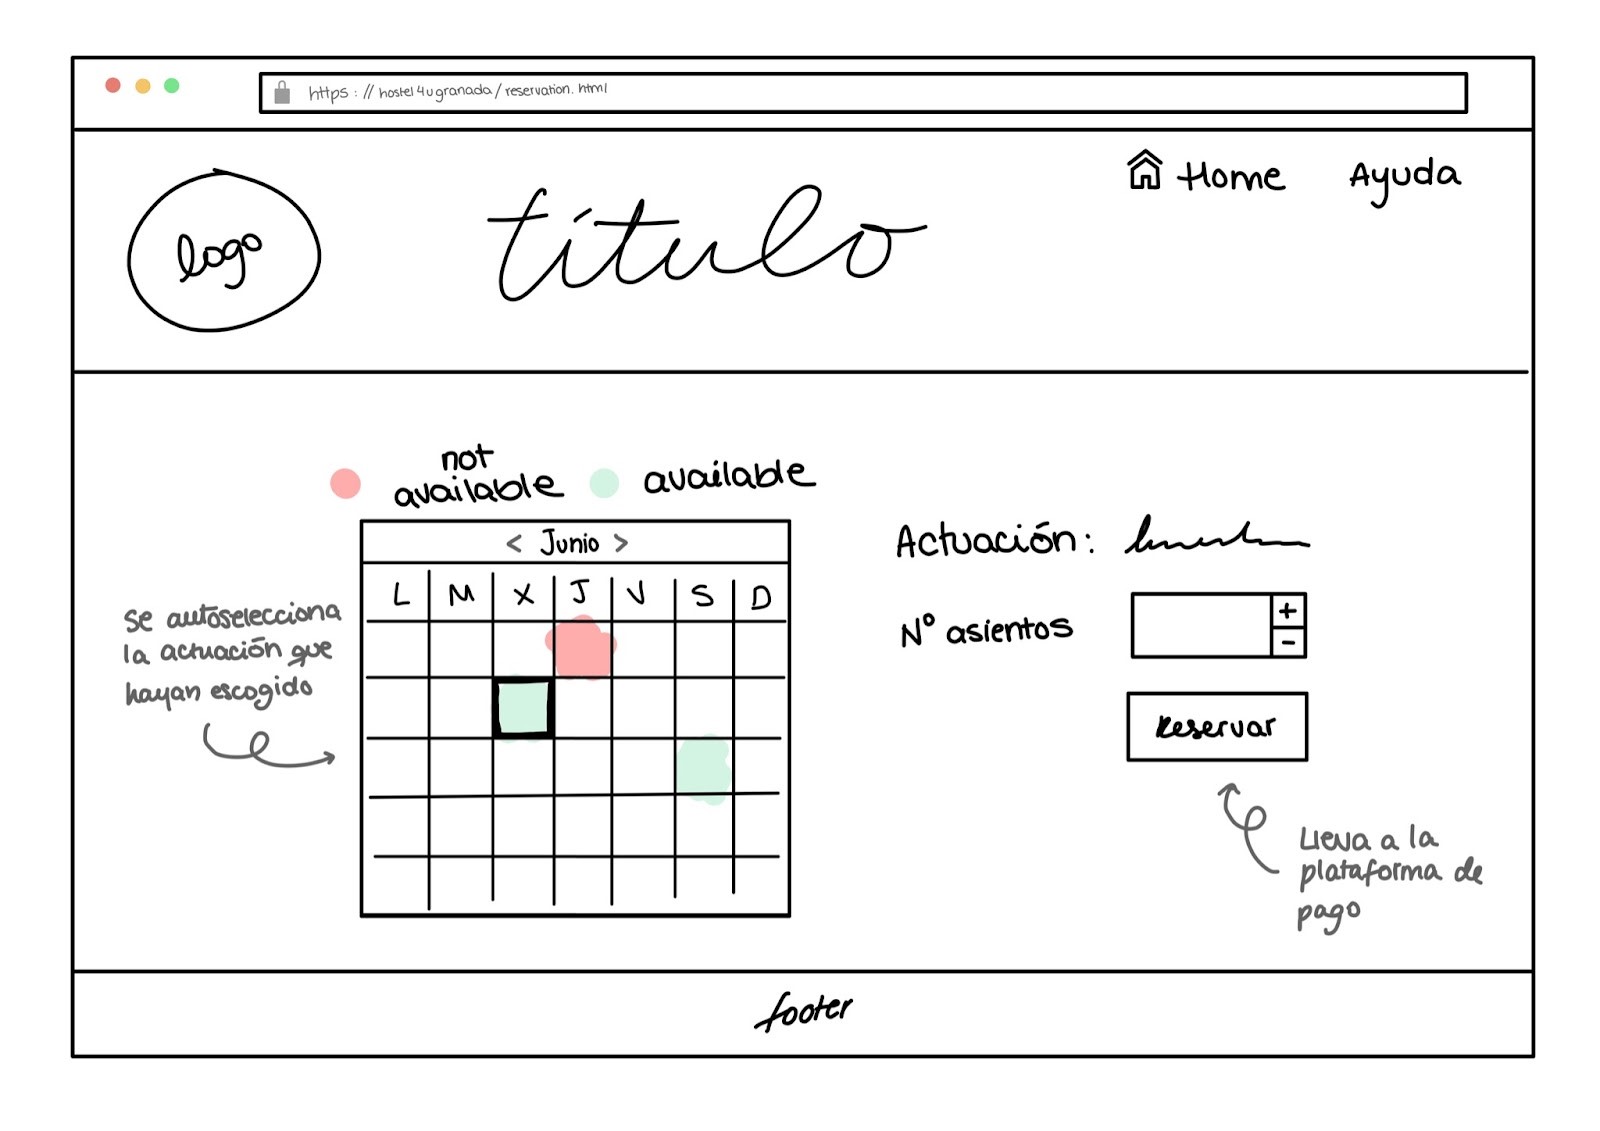 https://hostel4ugranada/reservation.html
Home
Ayuda
logo
título
not
available
available
< Junio >
L M X J V S D
Se autoselecciona
la actuación que
hayan escogido
Actuación:
Nº asientos
+
-
Reservar
Lleva a la
plataforma de
pago
footer